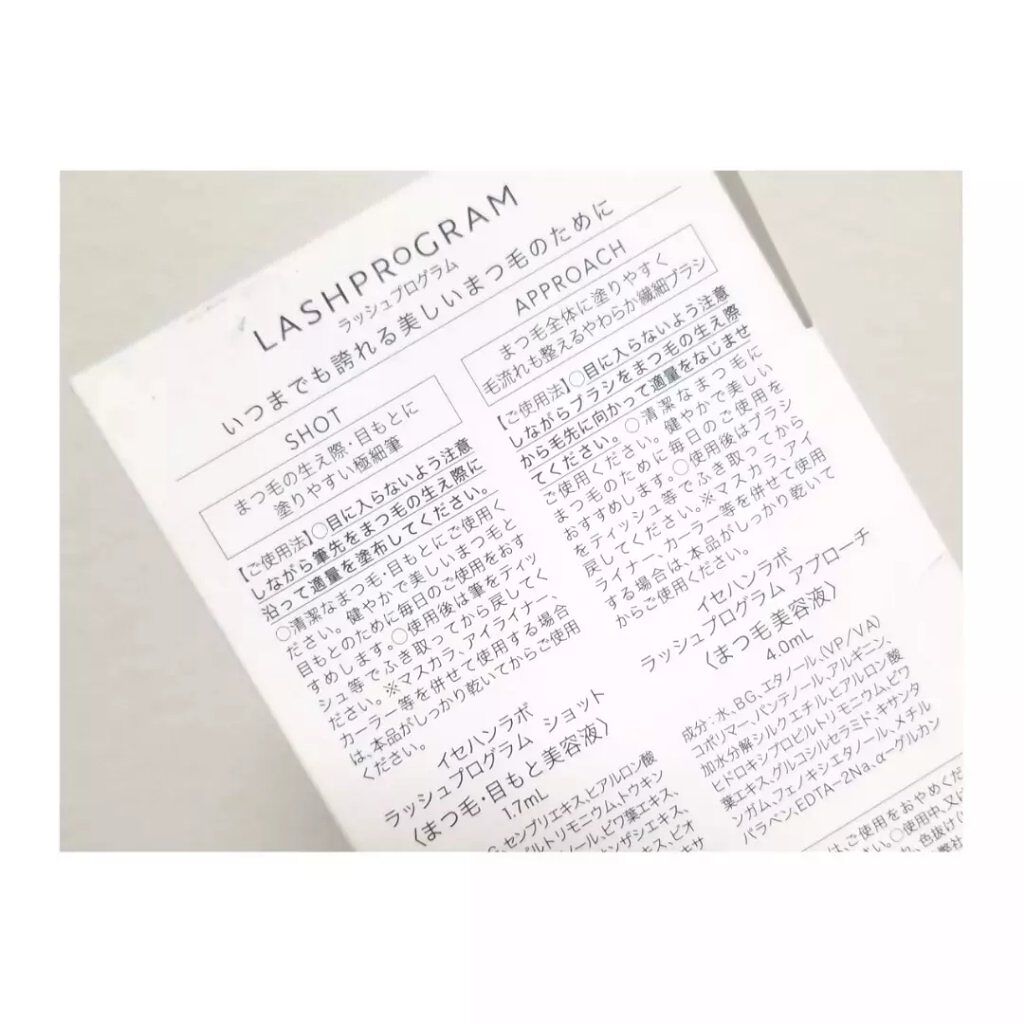 LASHPROGRAM
ラッシュプログラム
いつまでも誇れる美しいまつ毛のために
SHOT
まつ毛の生え際・目もとに
塗りやすい極細筆
【ご使用法】○目に入らないよう注意
しながら筆先をまつ毛の生え際に
沿って適量を塗布してください。
○清潔なまつ毛・目もとにご使用く
ださい。健やかで美しいまつ毛と
目もとのために毎日のご使用をおす
すめします。○使用後は筆をティッ
シュ等でふき取ってから戻してく
ださい。※マスカラ、アイライナー、
カーラー等を併せて使用する場合
は、本品がしっかり乾いてからご使用
ください。
イセハンラボ
ラッシュプログラム ショット
〈まつ毛・目もと美容液〉
1.7mL
センブリエキス、ヒアルロン酸
ルトリモニウム、トウキン
ノール、ビワ葉エキス、
ンザシエキス、
キス、ビオ
APPROACH
まつ毛全体に塗りやすく
毛流れも整えるやわらか繊細ブラシ
【ご使用法】○目に入らないよう注意
しながらブラシをまつ毛の生え際
から毛先に向かって適量をなじませ
てください。○清潔なまつ毛に
ご使用ください。健やかで美しい
まつ毛のために毎日のご使用を
おすすめします。○使用後はブラシ
をティッシュ等でふき取ってから
戻してください。※マスカラ、アイ
ライナー、カーラー等を併せて使用
する場合は、本品がしっかり乾いて
からご使用ください。
イセハンラボ
ラッシュプログラム アプローチ
〈まつ毛美容液〉
4.0mL
成分：水、BG、エタノール、(VP/VA)
コポリマー、パンテノール、アルギニン、
加水分解シルクエチル、ヒアルロン酸
ヒドロキシプロピルトリモニウム、ビワ
葉エキス、グルコシルセラミド、キサンタ
ンガム、フェノキシエタノール、メチル
パラベン、EDTA-2Na、α-グルカン
は、ご使用をおやめくだ
さい。○使用中、又は
色抜け(
弊社